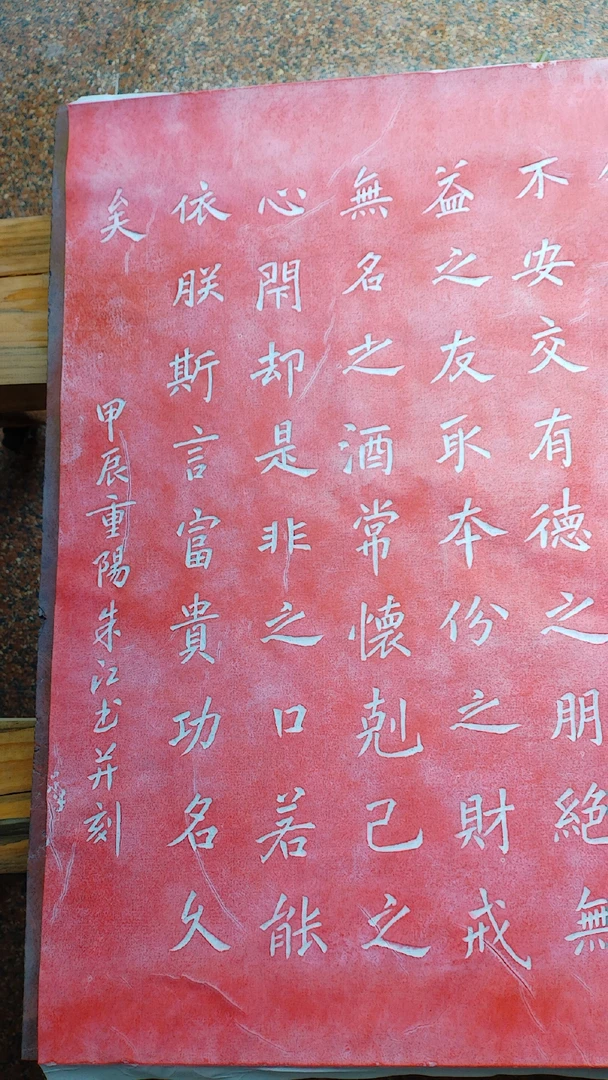 不安交有德之朋絕無
益之友取本份之財戒
無名之酒常懷剋己之
心閇却是非之口若能
依朕斯言富貴功名久
矣
甲辰重陽朱江书并刻